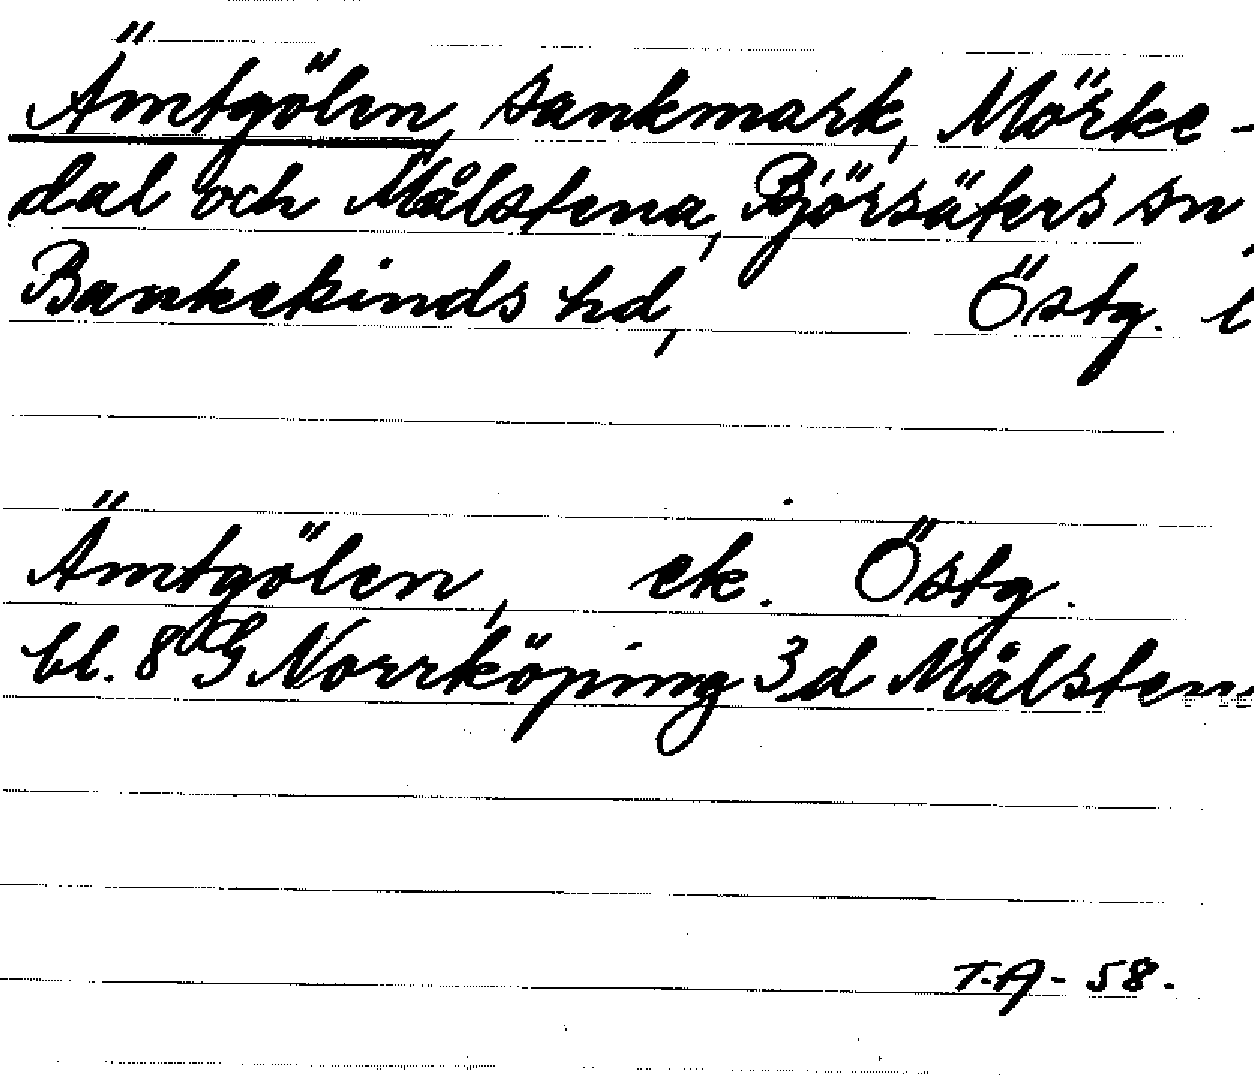 Ämtgölen, sankmark, Mörke-
dal och Målstena, Björsäters sn,
Bankekinds hd, Östg. l
Ämtgölen, ek. Östg.
bl. 8 G Norrköping 3d Målsten
T.A - 58.